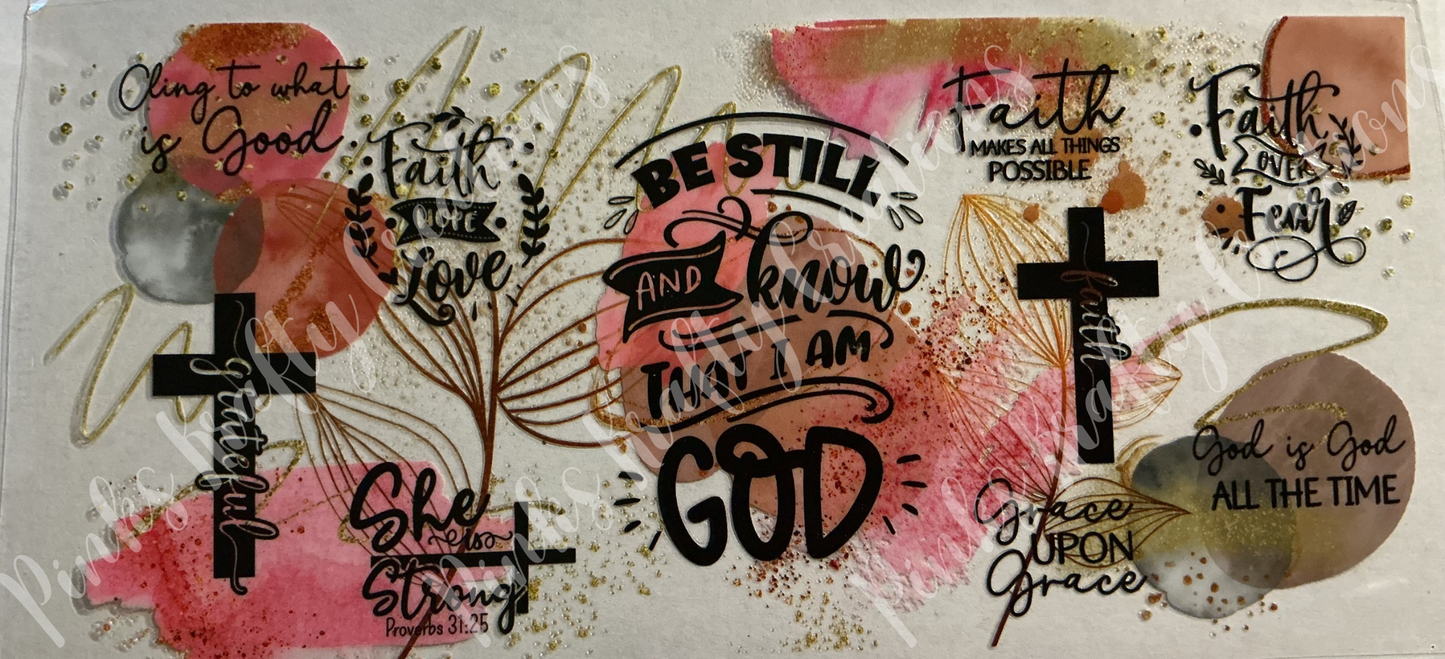 Cling to what
is Good
Faith
Love
grateful
She
is
Strong
Proverbs 31:25
BE STILL
AND know
THAT I AM
GOD
Faith
MAKES ALL THINGS
POSSIBLE
faith
Grace
UPON
Grace
Faith
OVER
Fear
God is God
ALL THE TIME
Pinks Krafty Creations
Pinks Krafty Creations
Pinks Krafty Creations